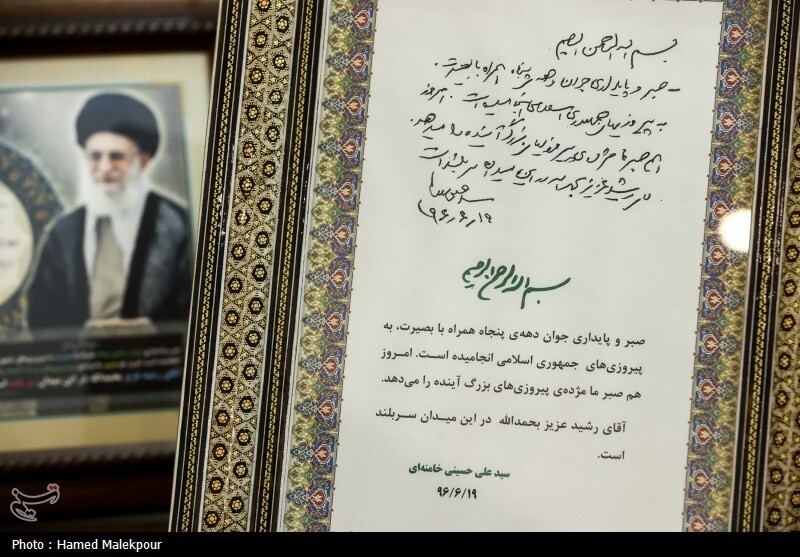 بسم الله الرحمن الرحیم
- صبر و پایداری جوان دهه‌ی پنجاه همراه با بصیرت،
به پیروزیهای جمهوری اسلامی انجامیده است. امروز
هم صبر ما مژده‌ی پیروزیهای بزرگ آینده را میدهد.
آقای رشید عزیز بحمدالله در این میدان سربلند است
سیدعلی خامنه‌ای
۹۶٫۶٫۱۹
بسم الله الرحمن الرحیم
صبر و پایداری جوان دهه‌ی پنجاه همراه با بصیرت، به
پیروزی‌های جمهوری اسلامی انجامیده است. امروز
هم صبر ما مژده‌ی پیروزی‌های بزرگ آینده را می‌دهد.
آقای رشید عزیز بحمدالله در این میدان سربلند
است.
سید علی حسینی خامنه‌ای
۹۶/۶/۱۹
تسنیم
Photo : Hamed Malekpour